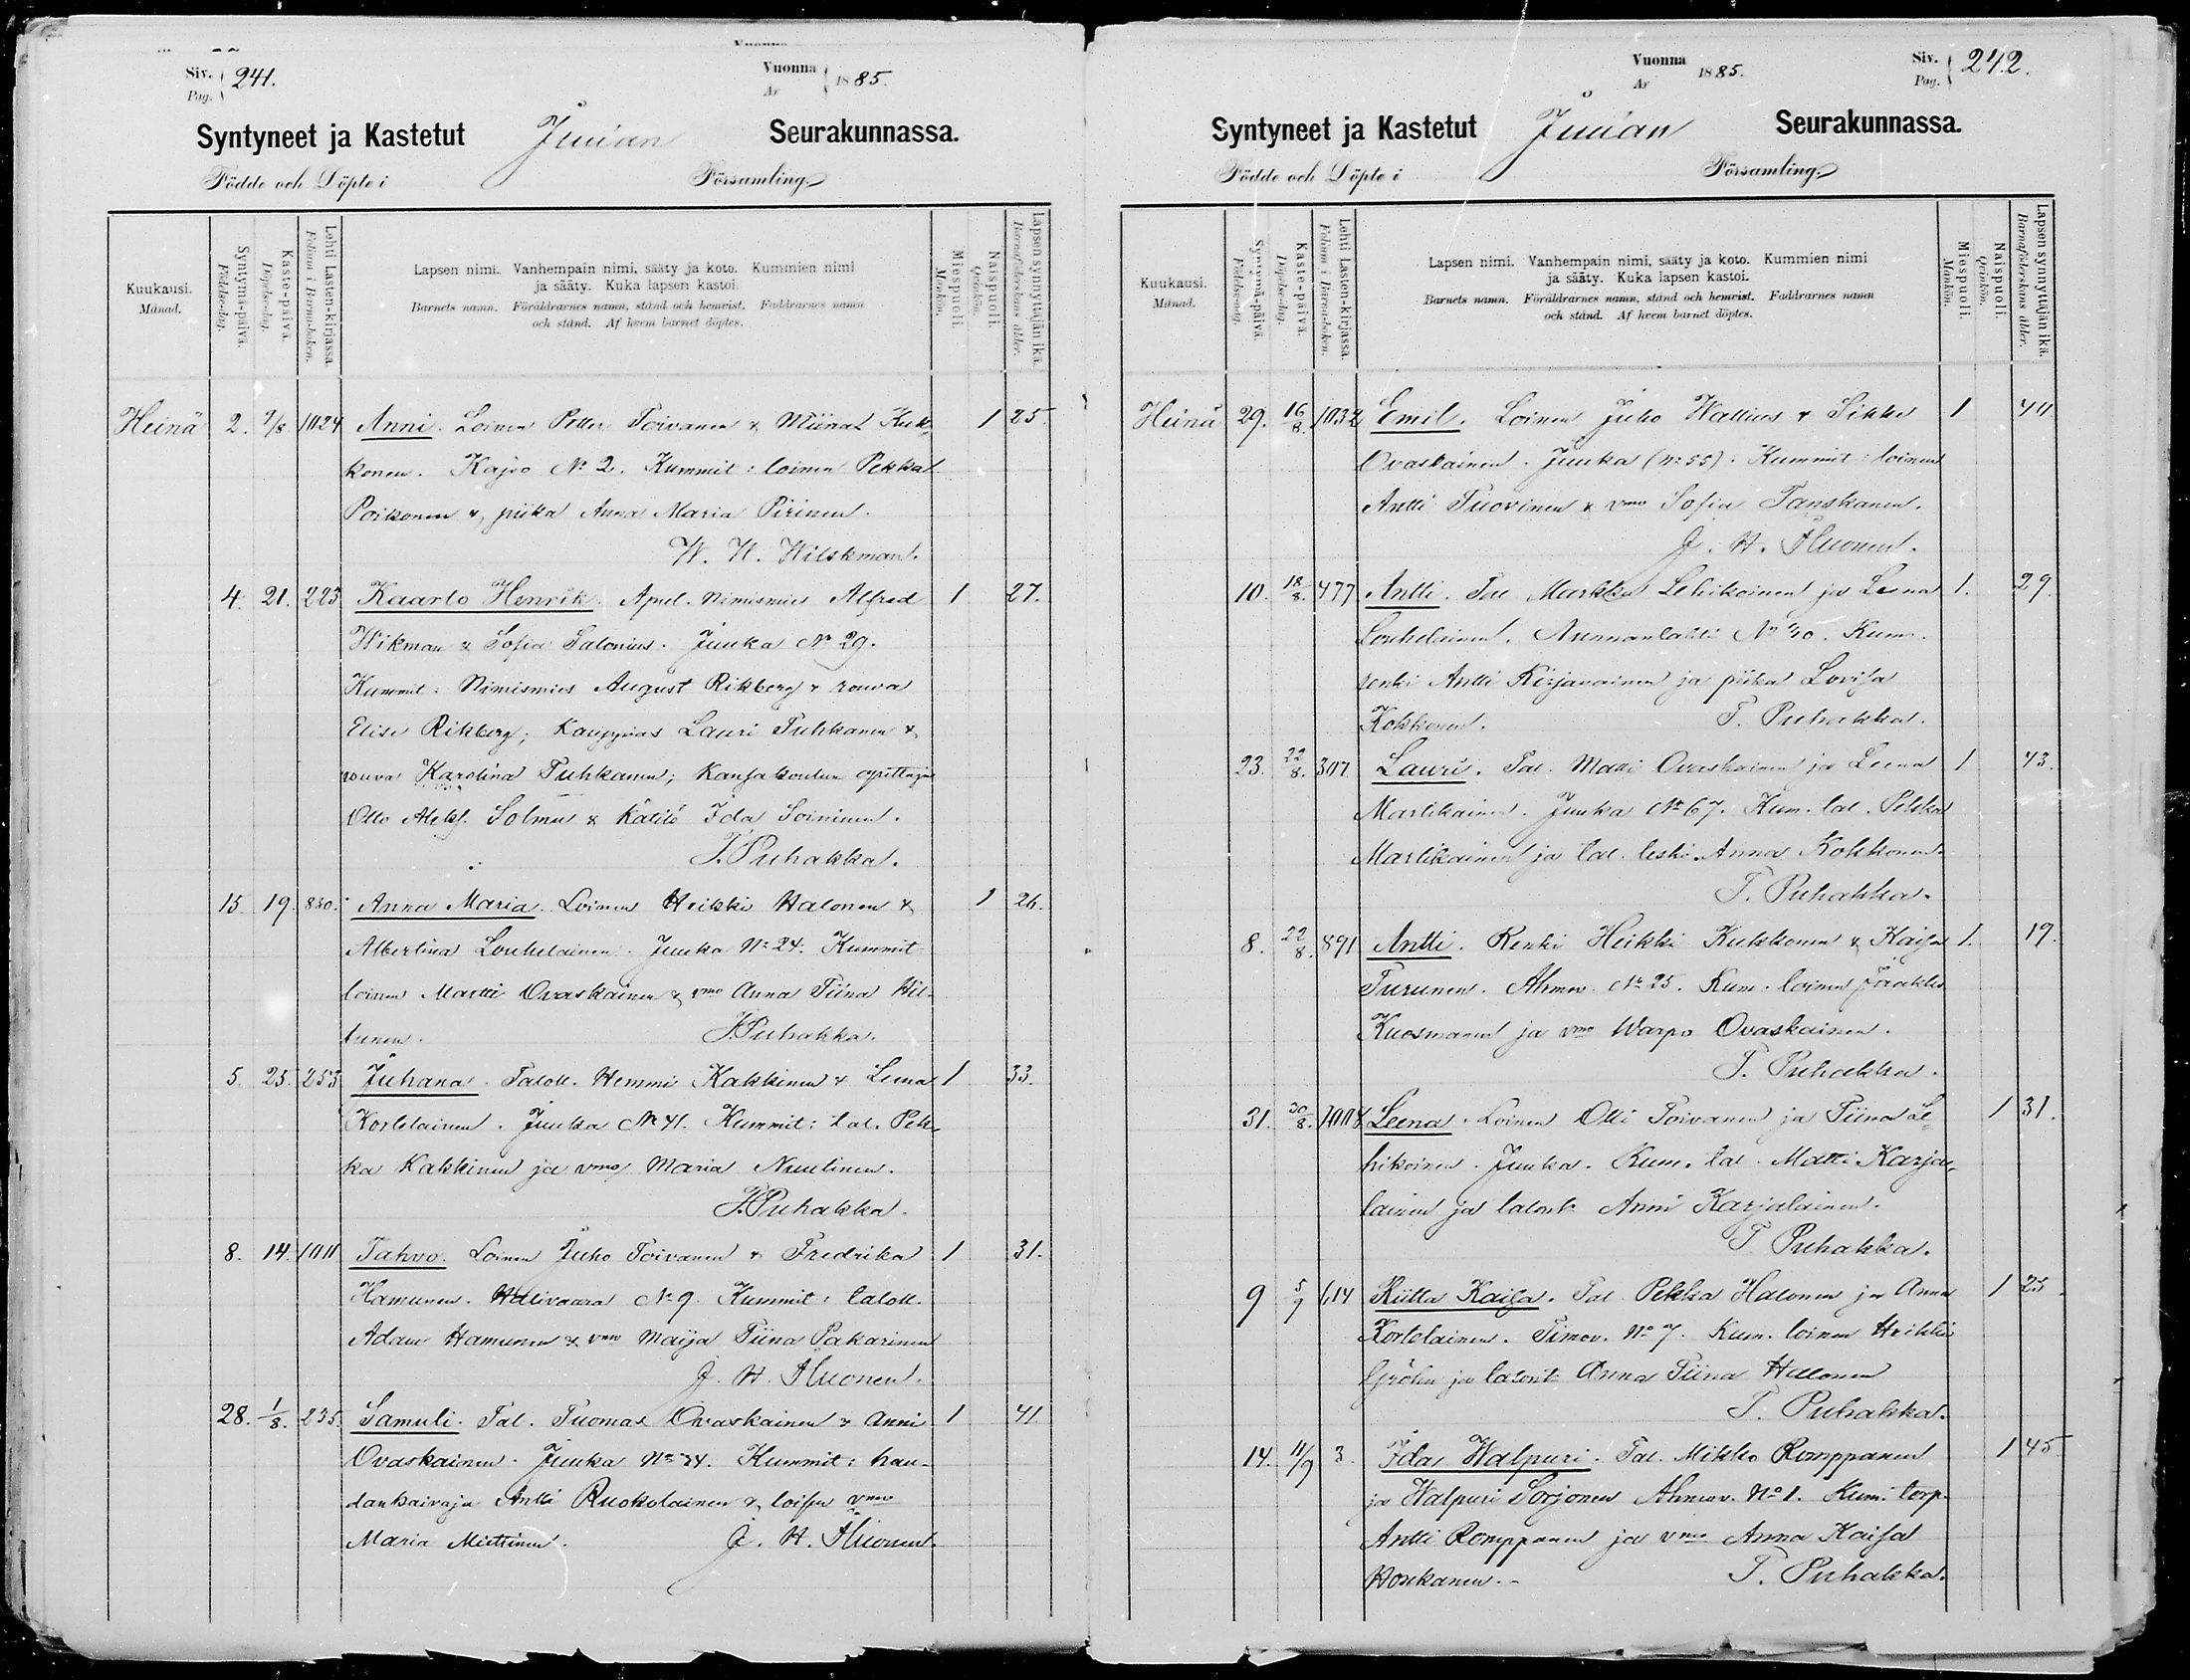 Siv. 241.
Pag.
Vuonna 1885.
År
Syntyneet ja Kastetut Juuan Seurakunnassa.
Födde och Döpte i Församling.
Kuukausi.
Månad.
Syntymä-päivä.
Födelse-dag.
Kaste-päivä.
Döpelse-dag.
Lehti Lasten-kirjassa.
Folium i Barna-boken.
Lapsen nimi. Vanhempain nimi, sääty ja koto. Kummien nimi
ja sääty. Kuka lapsen kastoi.
Barnets namn. Föräldrarnes namn, stånd och hemvist. Faddrarnes namn
och stånd. Af hvem barnet döptes.
Miespuoli.
Mankön.
Naispuoli.
Qvinkön.
Lapsen synnyttäjän ikä.
Barnaföderskans ålder.
Heinä 2. 9/8 1024 Anni. Loinen Petter Toivanen & Miina Kuk- 1 25.
konen. Kajoo No 2. Kummit: loinen Pekka
Poikonen & piika Anna Maria Pirinen.
W. W. Wilskman.
4. 21. 223 Kaarlo Henrik. Apul. Nimismies Alfred 1 27.
Wikman & Sofia Salonius. Juuka No 29.
Kummit: Nimismies August Rikberg & rouva
Elise Rikberg; Kauppias Lauri Tuhkanen &
rouva Karolina Tuhkanen; Kansakoulun opettaja
Otto Solmu & Kätilö Ida Soininen.
T. Puhakka.
15 19. 830. Anna Maria. Loinen Heikki Halonen & 1 26.
Albertina Louhelainen. Juuka No 24. Kummit
loinen Martti Ovaskainen & vmo Anna Tiina Hil-
tunen. T. Puhakka.
5. 25. 253 Juhana. Taloll. Hemmi Kakkinen & Leena 1 33.
Kortelainen. Juuka No 41. Kummit: tal. Pek-
ka Kakkinen ja vmo Maria Nuutinen.
T. Puhakka.
8. 14. 1011 Tahvo. Loinen Juho Toivanen & Fredrika 1 31.
Hamunen. No 9. Kummit: taloll.
Adam Hamunen & vmo Maija Tiina Pakarinen
J. H. Ihuonen.
28. 1/8. 235. Samuli. Tal. Tuomas Ovaskainen & Anni 1 41.
Ovaskainen. Juuka No 34. Kummit: hau-
dankaivaja Antti Ruokolainen & loisen vmo
Maria Miettinen. J. H. Ihuonen.
Vuonna 1885.
År
Siv. 242.
Pag.
Syntyneet ja Kastetut Juuan Seurakunnassa.
Födde och Döpte i Församling.
Kuukausi.
Månad.
Syntymä-päivä.
Födelse-dag.
Kaste-päivä.
Döpelse-dag.
Lehti Lasten-kirjassa.
Folium i Barna-boken.
Lapsen nimi. Vanhempain nimi, sääty ja koto. Kummien nimi
ja sääty. Kuka lapsen kastoi.
Barnets namn. Föräldrarnes namn, stånd och hemvist. Faddrarnes namn
och stånd. Af hvem barnet döptes.
Miespuoli.
Mankön.
Naispuoli.
Qvinkön.
Lapsen synnyttäjän ikä.
Barnaföderskans ålder.
Heinä 29. 16/8. 1032 Emil. Loinen Juho Wallius & Sikke 1 44
Ovaskainen. Juuka (No 55). Kummit: loinen
Antti Tuovinen & vmo Sofia Tanskanen.
J. H. Ihuonen.
10. 18/8. 477 Antti. Tal. Markku Lehikoinen ja Leena 1. 29.
Louhelainen. Nunnanlahti No 40. Kum.
renki Antti Kirjavainen ja piika Lovisa
Kokkonen. T. Puhakka.
23. 22/8. 307 Lauri. Tal. Matti Ovaskainen ja Leena 1 43.
Martikainen. Juuka No 67. Kum. tal. Pekka
Martikainen ja tal. leski Anna Kokkonen.
T. Puhakka.
8. 22/8. 891 Antti. Renki Heikki Kukkonen & Kaisa 1. 19.
Turunen. Ahmov. No 25. Kum. loinen Jaakko
Kuosmanen ja vmo Warpo Ovaskainen.
T. Puhakka.
31. 30/8. 1008 Leena. Loinen Olli Toivanen ja Tiina Le- 1 31.
hikoinen. Juuka. Kum. tal. Matti Karja-
lainen ja talont. Anni Karjalainen.
T. Puhakka.
9 5/9 614 Riitta Kaisa. Tal. Pekka Halonen ja Anna 1 25.
Kortelainen. Timov. No 7. Kum. loinen Heikki
Gröhn ja talont. Anna Tiina Halonen
T. Puhakka.
14. 11/9 3. Ida Walpuri. Tal. Mikko Romppanen 1 45.
ja Walpuri Sorjonen Ahmov. No 1. Kum. torp.
Antti Romppanen ja vmo Anna Kaisa
T. Puhakka.